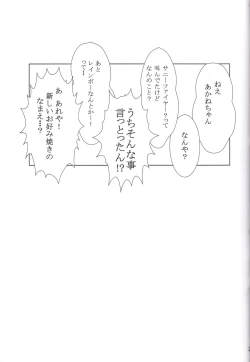 ねえ
あかねちゃん
なんや?
サニーファイヤー?って
叫んでたけど
なんのこと?
うちそんな事
言っとったん!?
あと
レインボーなんとかー!
ってー
あ あれや!
新しいお好み焼きの
なまえ…?